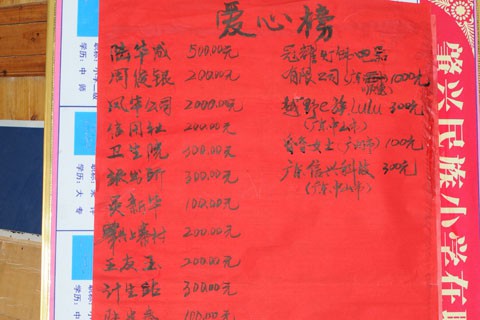 爱心榜
陆华成 500.00元
周俊锟 200.00元
风华公司 2000.00元
信用社 200.00元
卫生院 400.00元
派出所 300.00元
吴新华 100.00元
肇兴寨村 200.00元
王友玉 200.00元
计生站 300.00元
100.00元
冠雅灯饰电器
有限公司 1000元
越野e族LuLu 300元
(广东中山市)
女士(广州市) 100元
广东信兴科技 300元
(广东中山市)
肇兴民族小学在
职称:小学二级
学历:中师
学历:大专
学历:中